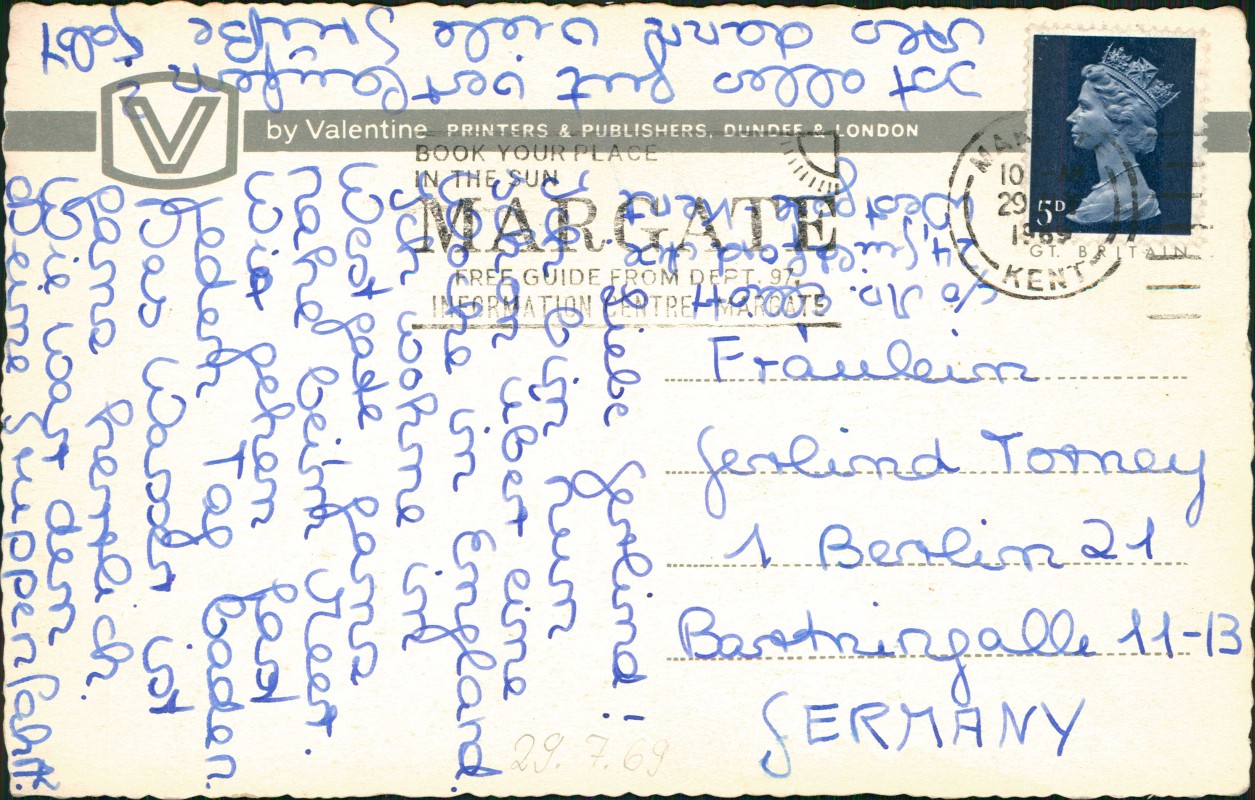 by Valentine PRINTERS & PUBLISHERS, DUNDEE & LONDON
V
BOOK YOUR PLACE
IN THE SUN
MARGATE
FREE GUIDE FROM DEPT. 97,
INFORMATION CENTRE MARGATE
MAR
10
29
1969
GT. BRITAIN
KENT
5D
c/o
24
Westgate
Kent
Fräulein
Gerlind Torney
1 Berlin 21
Bartningallee 11-13
GERMANY
29.7.69
Liebe Gerlind!
Ich bin nun
schon über eine
Woche in England.
Ich wohne in
Westgate ganz
nahe beim Meer.
Wir gehen fast
jeden Tag baden.
Das ist
ganz herrlich.
Wie war denn
Deine Gruppenfahrt.
Ist alles gut verlaufen?
Also dann viele Grüße
Gabi